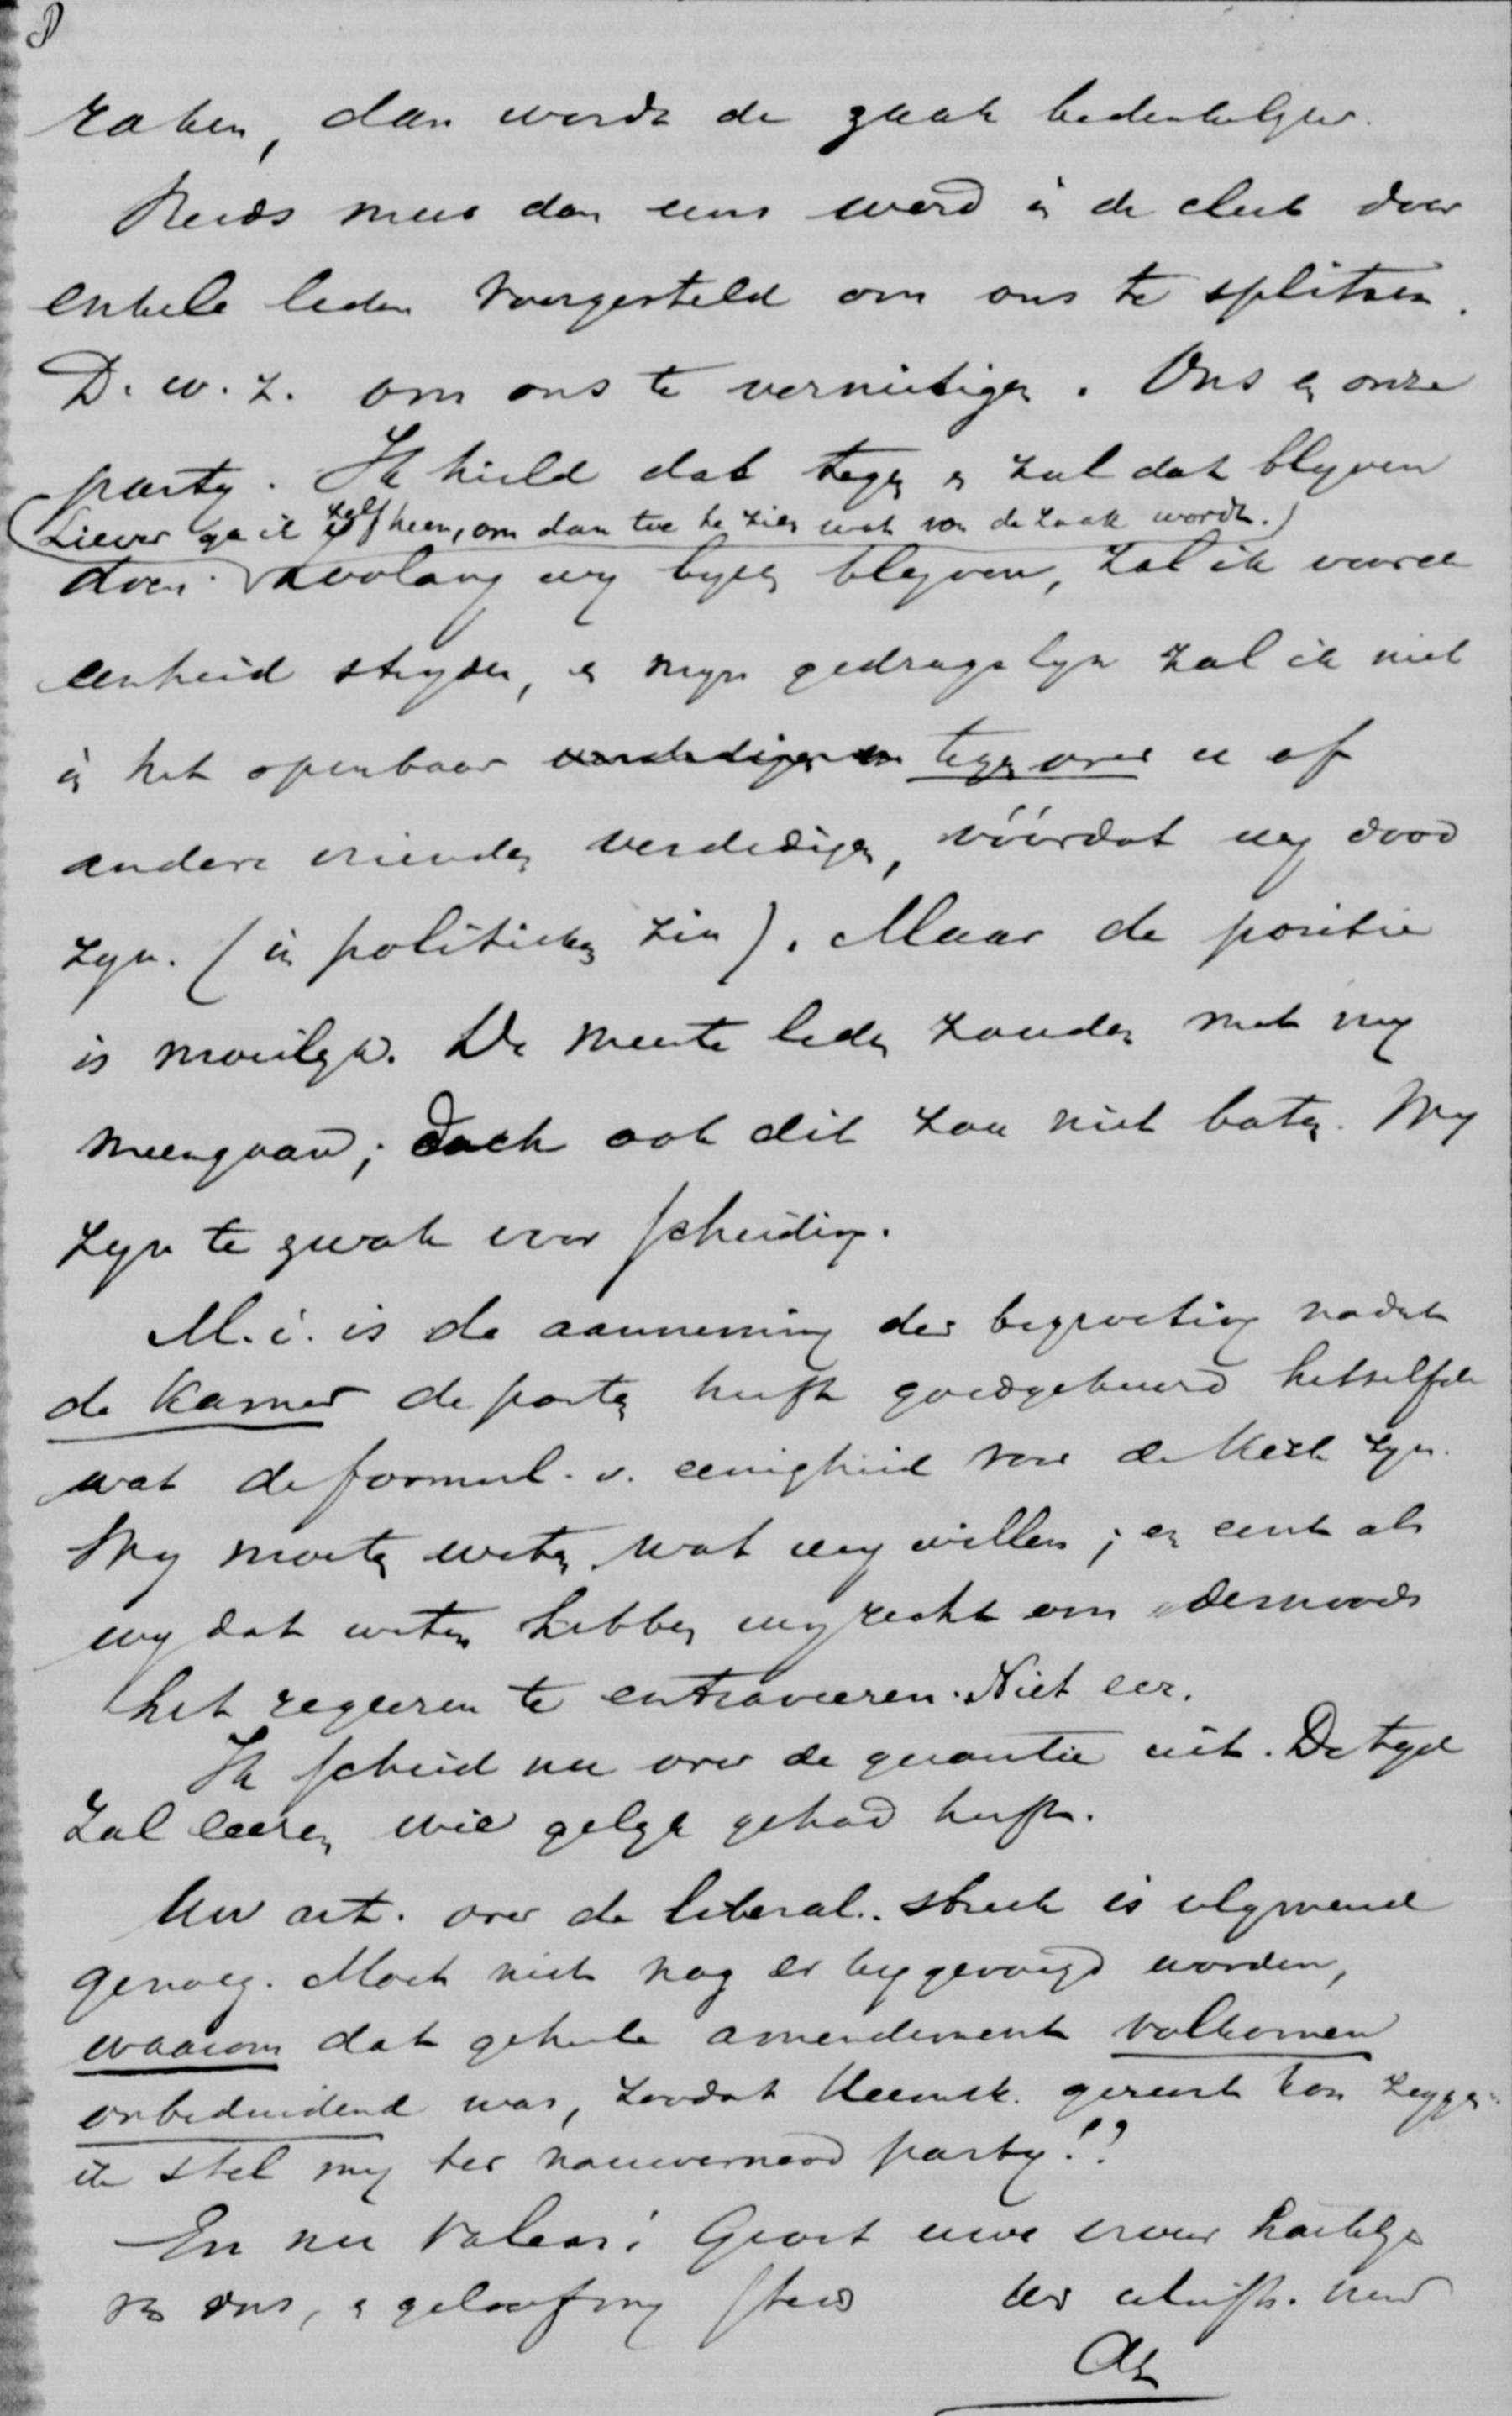 raken, dan wordt de zaak bedenkelyker.
Reeds meer dan eens werd in de club door
enkele leden voorgesteld om ons te splitsen.
D. w. z. om ons te vernietigen. Ons en onze
party. Ik hield dat tegen en zal dat blyven
(Liever ga ik zelf heen, om dan toe te zien wat van de zaak wordt.)
doen. Zoolang wy byeen blyven, zal ik voor de
eenheid stryden, en myn gedragslyn zal ik niet
in het openbaar verdedigen tegenover u of
andere vrienden verdedigen, vóórdat wy dood
zyn. (in politieken zin). Maar de positie
is moeilyk. De meeste leden zouden met my
meegaan; doch ook dit zou niet baten. Wy
zyn te zwak voor scheiding.
M. i. is de aanneming der begrooting nadat
de Kamer de posten heeft goedgekeurd hetzelfde
wat de formul. v. eenigheid voor de Kerk zyn.
Wy moeten weten wat wy willen; en eerst als
wy dat weten hebben wy recht om desnoods
het regeeren te entraveeren. Niet eer.
Ik scheid nu over de quaestie uit. De tyd
zal leeren wie gelyk gehad heeft.
Uw art. over de liberal. streek is afgemeend
genoeg. Moet niet nog er bygevoegd worden,
waarom dat geheele amendement volkomen
onbeduidend was, zoodat Heemsk. gerust kon zeggen:
ik stel my ter nauwernood party!?
En nu Valeas! Groet uwe vrouw hartelyk
van ons, en geloof my steeds der christ. uw